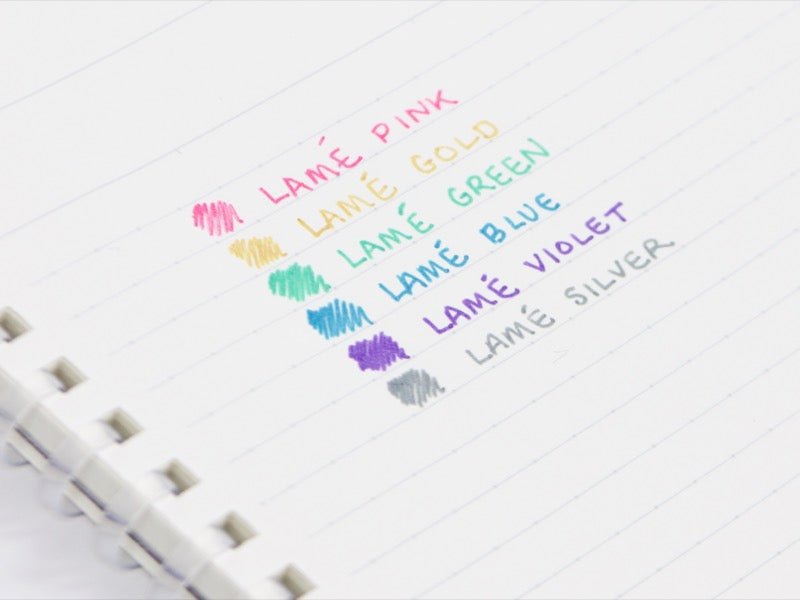 LAMÉ PINK
LAMÉ GOLD
LAMÉ GREEN
LAMÉ BLUE
LAMÉ VIOLET
LAMÉ SILVER